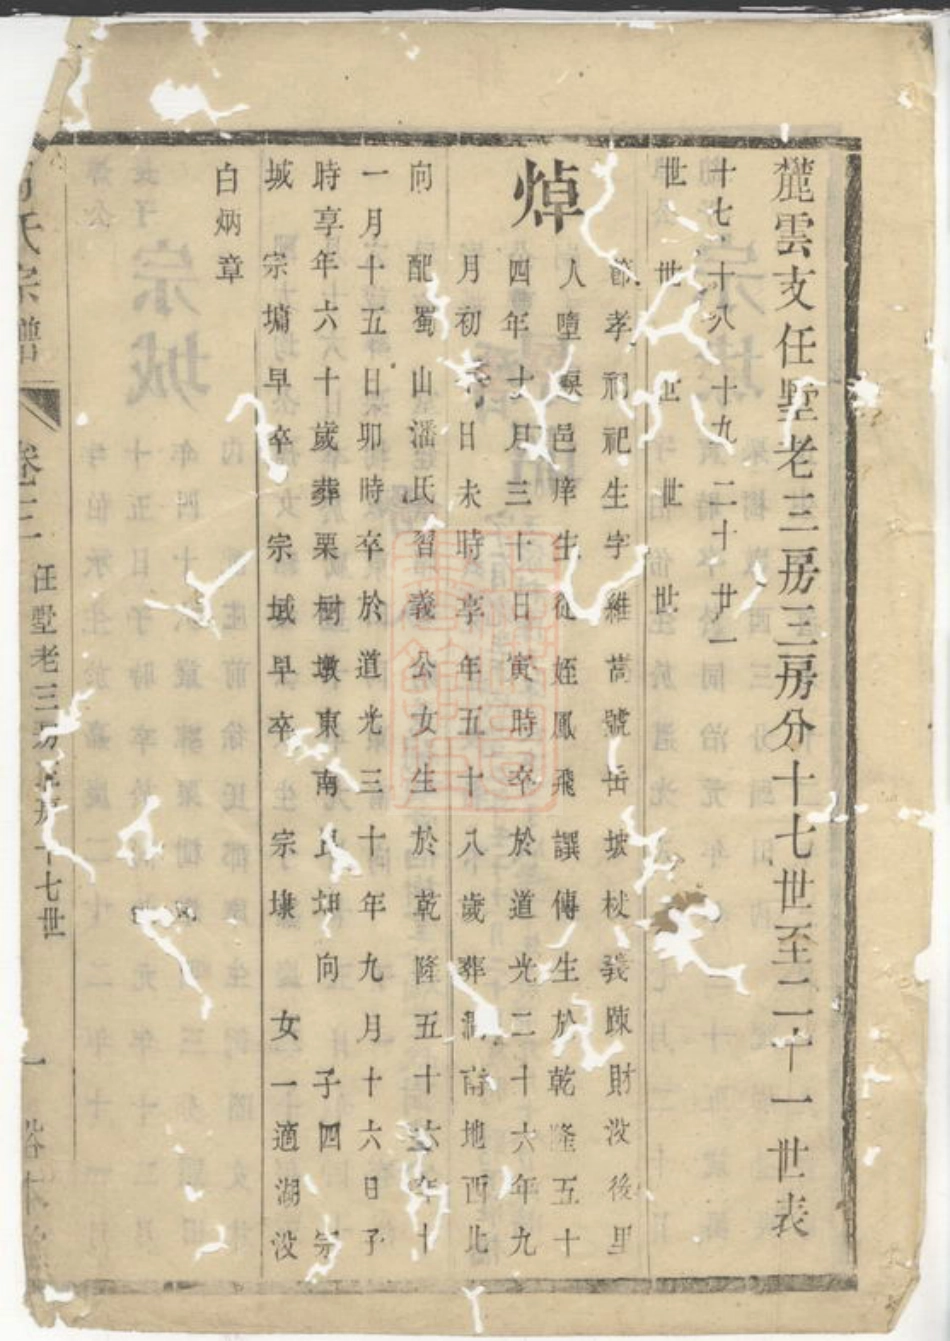 麓雲支任墅老三房三房分十七世至二十一世表
十七世 十八世 十九世 二十世 廿一世
焯
節孝祠祀生字維嵩號岳坡杖義踈財没後里
人墮淚邑庠生從姪鳳飛譔傳生於乾隆五十
四年十月三十日寅時卒於道光二十六年九
月初 日未時享年五十八歲葬 南地西北
向 配蜀山潘氏習義公女生於乾隆五十六年十
一月十五日卯時卒於道光三十年九月十六日子
時享年六十歲葬栗樹墩東南艮坤向 子四 宗
城 宗墉早卒 宗域早卒 宗埭 女一適湖㳇
白炳章
氏宗譜 卷三 任墅老三房 十七世 一